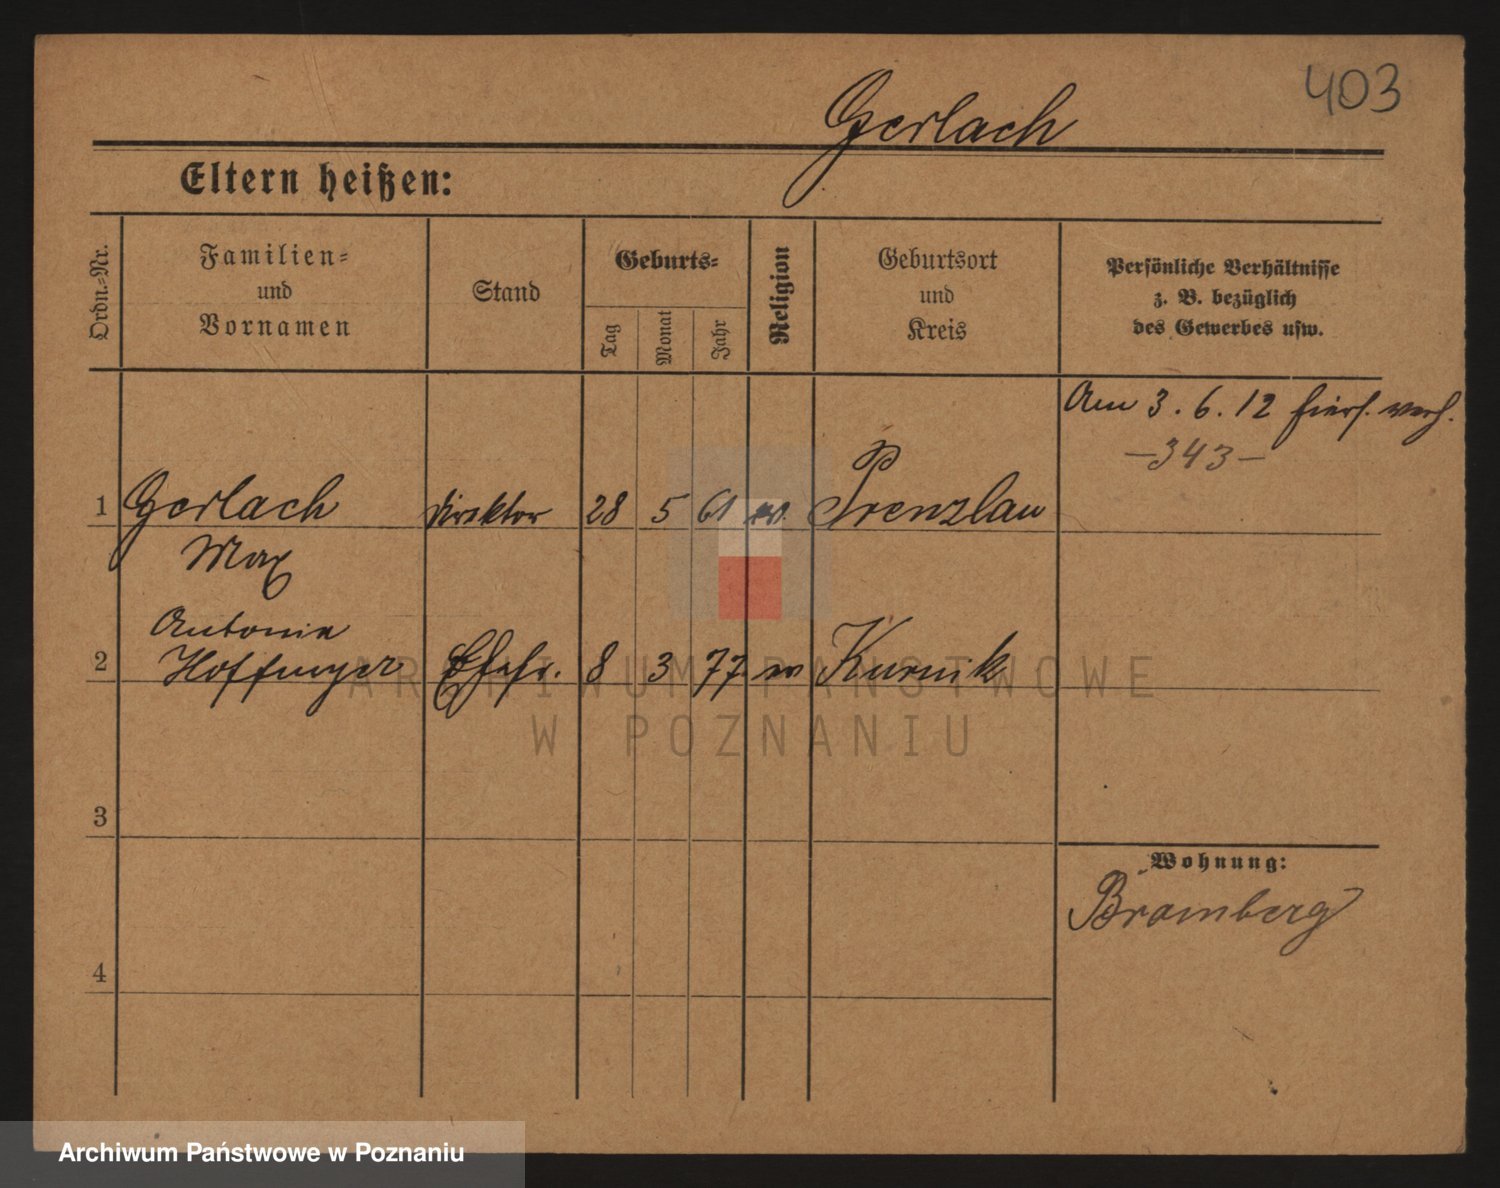 403
Gerlach
Eltern heißen:
Ordn.-Nr.
Familien-
und
Vornamen
Stand
Geburts-
Tag
Monat
Jahr
Religion
Geburtsort
und
Kreis
Persönliche Verhältnisse
z. B. bezüglich
des Gewerbes usw.
Am 3. 6. 12 hiers. verh.
-343-
1 Gerlach Direktor 28 5 61 ev. Prenzlau
Max
Antonie
2 Hoffmeyer Ehefr. 8 3 77 ev Kurnik
3
4
Wohnung:
Bromberg
ARCHIWUM PAŃSTWOWE
W POZNANIU
Archiwum Państwowe w Poznaniu